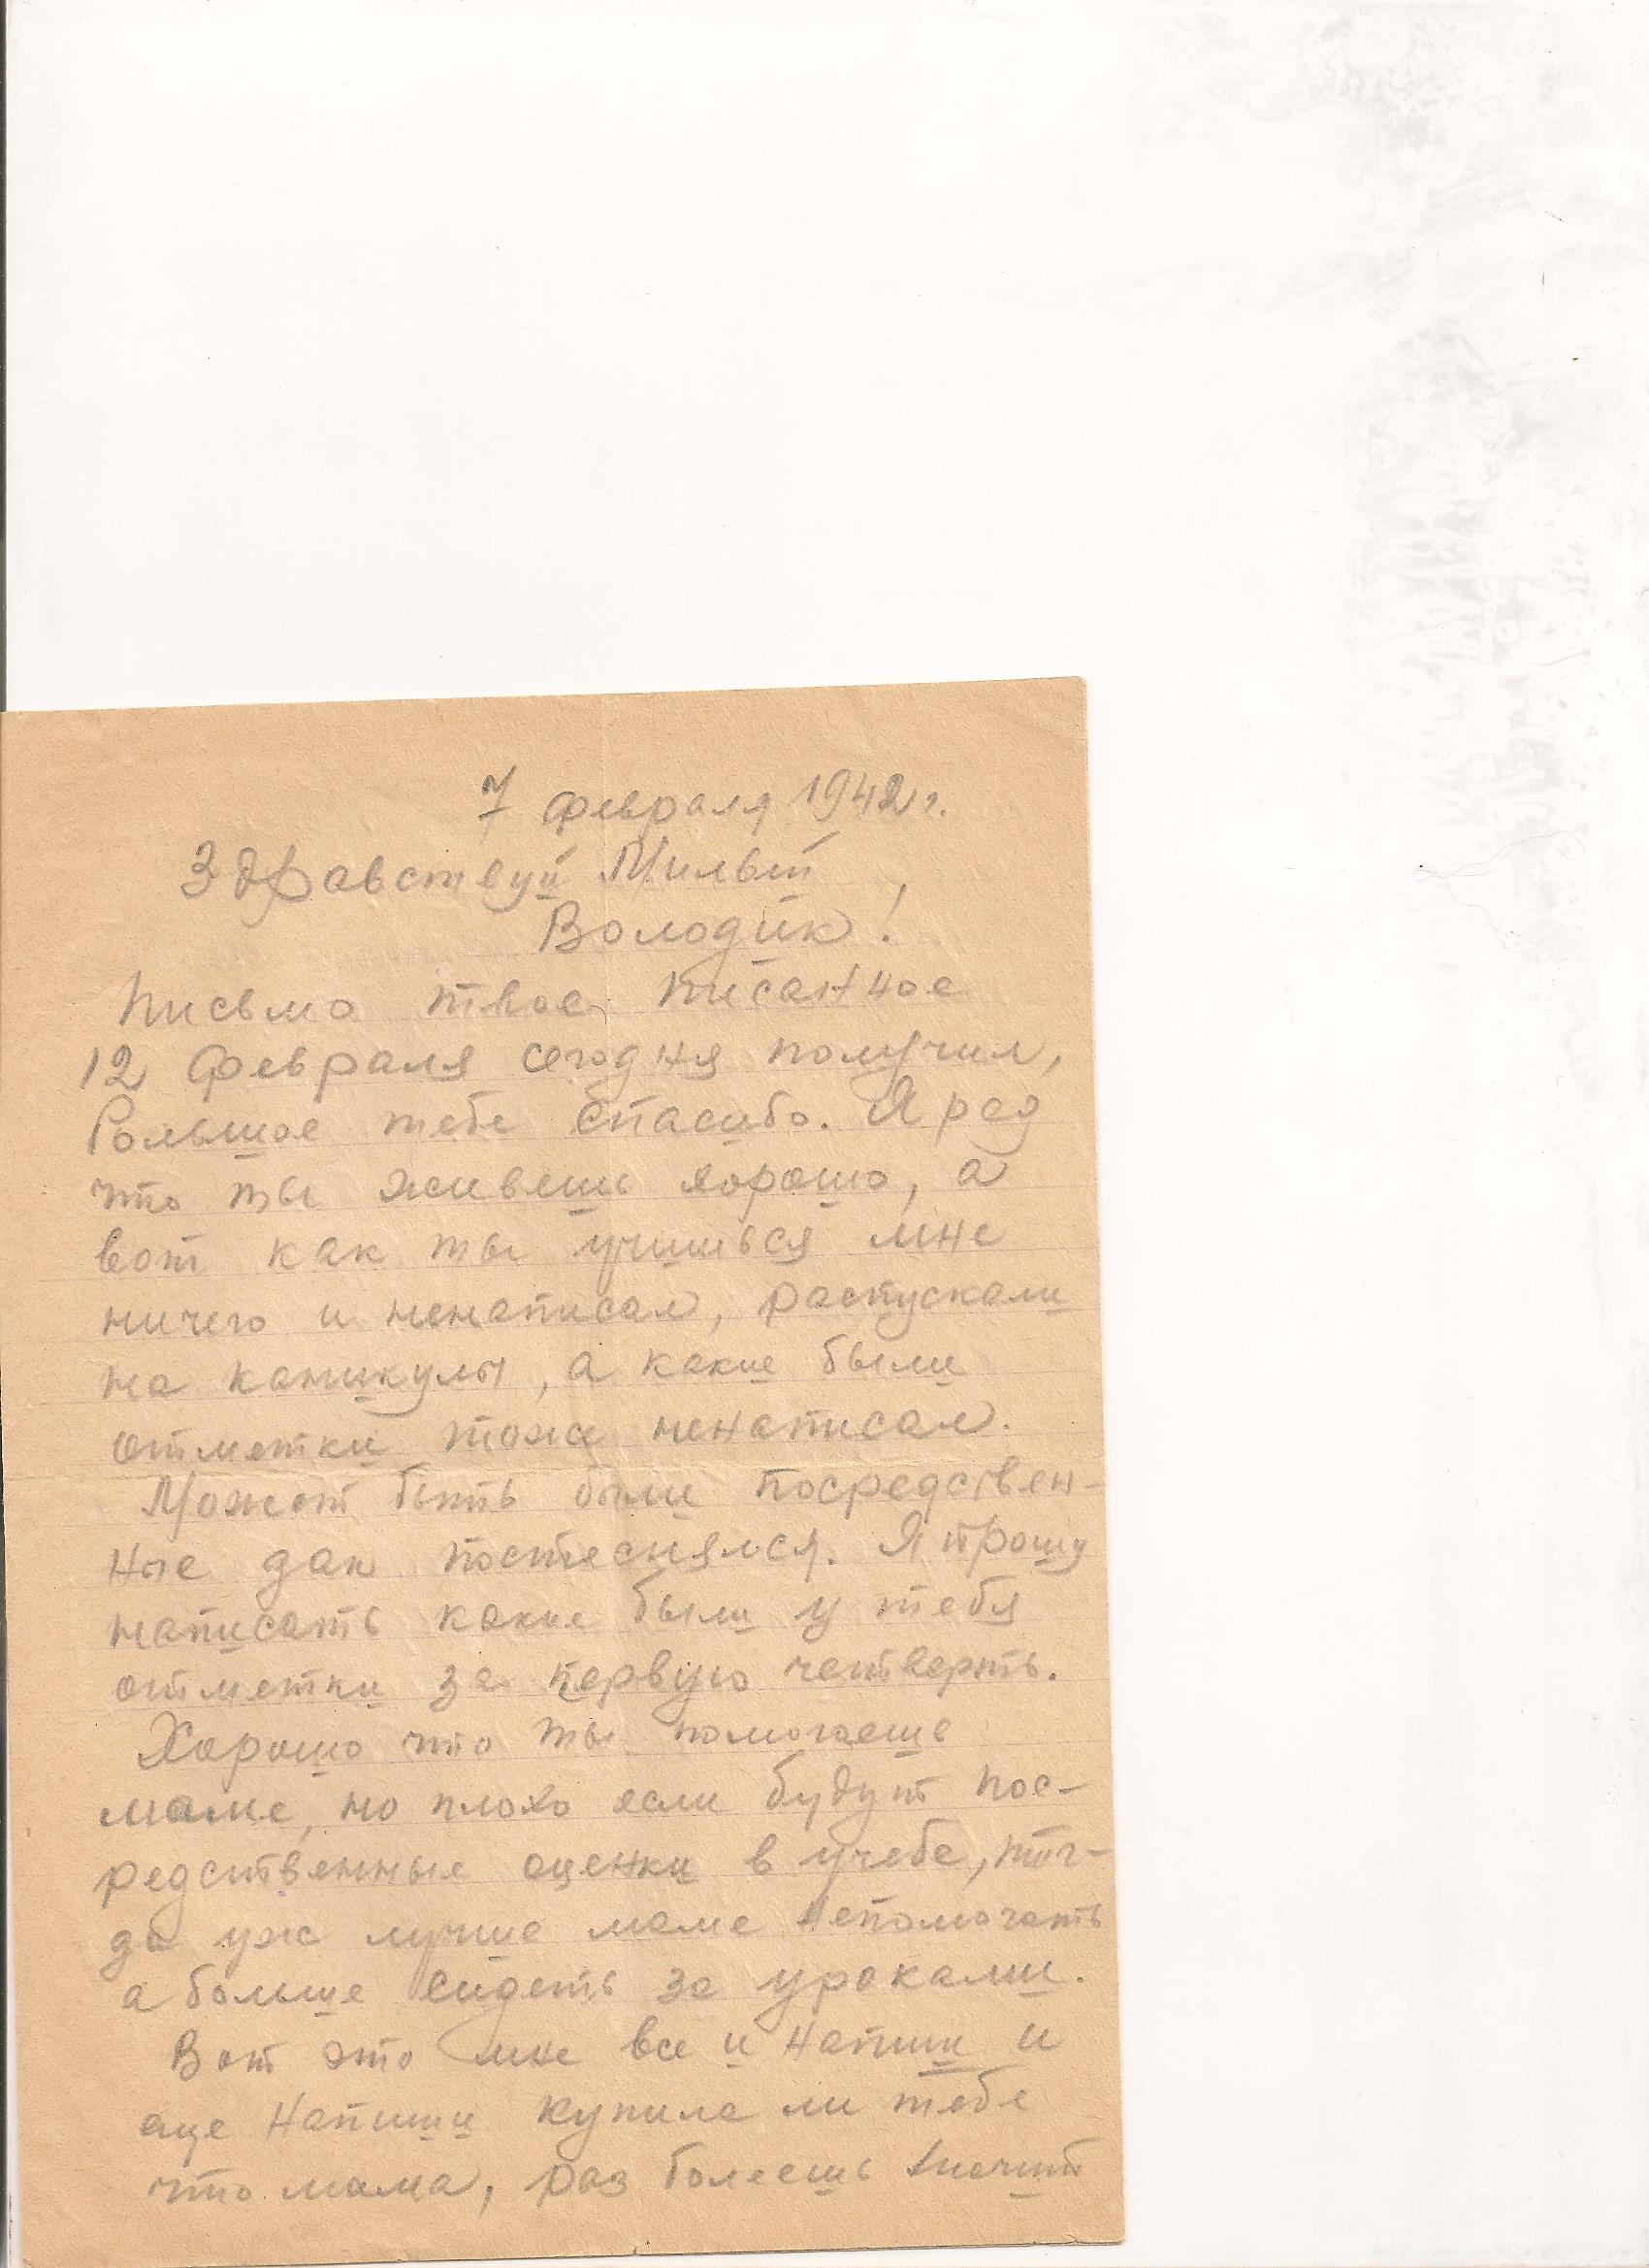 7 февраля 1942 г.
Здравствуй Милый
Володик!
Письмо твое писанное
12 февраля сегодня получил,
Большое тебе спасибо. Я рад
что ты живешь хорошо, а
вот как ты учишься мне
ничего и ненаписал, распускали
на каникулы, а какие были
отметки тоже ненаписал.
Может быть были посредствен-
ные дак постеснялся. Я прошу
написать какие были у тебя
отметки за первую четверть.
Хорошо что ты помогаешь
маме, но плохо если будут пос-
редственные оценки в учебе, тог-
да уж лучше маме непомогать
а больше сидеть за уроками.
Вот это мне все и напиши и
еще напиши купила ли тебе
что мама, раз болеешь значит